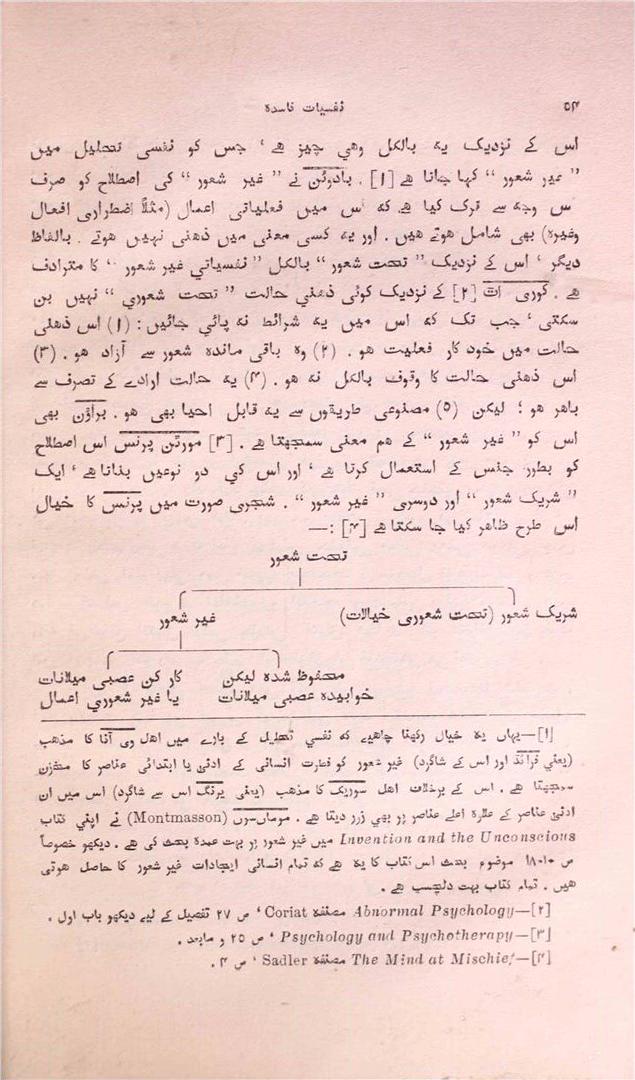 ۵۴ نفسیات فاسدہ
اس کے نزدیک یہ بالکل وهي چیز هے ' جس کو نفسی تحلیل میں
" غیر شعور " کہا جاتا هے [۱] . بادوئن نے " غیر شعور " کی اصطلاح کو صرف
اس وجہ سے ترک کیا هے کہ اس میں فعلیاتی اعمال (مثلاً اضطراری افعال
وغیرہ) بھی شامل هوتے هیں . اور یہ کسی معنی میں ذهنی نہیں هوتے . بالفاظ
دیگر ' اس کے نزدیک " تحت شعور " بالکل " نفسیاتی غیر شعور " کا مترادف
هے . کوری اٹ [۲] کے نزدیک کوئی ذهنی حالت " تحت شعوري " نہیں بن
سکتی ' جب تک کہ اس میں یہ شرائط نہ پائي جائیں : (۱) اس ذهنی
حالت میں خود کار فعلیت هو . (۲) وہ باقی ماندہ شعور سے آزاد هو . (۳)
اس ذهنی حالت کا وقوف بالکل نہ هو . (۴) یہ حالت ارادے کے تصرف سے
باهر هو ؛ لیکن (۵) مصنوعی طریقوں سے یہ قابل احیا بھی هو . براؤن بھی
اس کو " غیر شعور " کے هم معنی سمجھتا هے . [۳] مورٹن پرنس اس اصطلاح
کو بطور جنس کے استعمال کرتا هے ' اور اس کي دو نوعیں بتاتا هے ' ایک
" شریک شعور " اور دوسری " غیر شعور " . شجری صورت میں پرنس کا خیال
اس طرح ظاهر کیا جا سکتا هے [۴] :—
تحت شعور
شریک شعور (تحت شعوری خیالات) غیر شعور
محفوظ شدہ لیکن کار کن عصبی میلانات
خوابیدہ عصبی میلانات یا غیر شعوري اعمال
[۱]—یہاں یہ خیال رکھنا چاهیے کہ نفسي تحلیل کے بارے میں اهل وی آنا کا مذهب
(یعنی فرائڈ اور اس کے شاگرد) غیر شعور کو فطرت انسانی کے ادنیٰ یا ابتدائی عناصر کا مخزن
سمجھتا هے . اس کے برخلاف اهل سوریک کا مذهب (یعنی یونگ اس سے شاگرد) اس میں ان
ادنیٰ عناصر کے علاوہ اعلے عناصر پر بھی زور دیتا هے . موماںسوں (Montmasson) نے اپني کتاب
Invention and the Unconscious میں غیر شعور پر بہت عمدہ بحث کی هے . دیکھو خصوصاً
ص ۱۰-۱۸ موضوع بحث اس کتاب کا یہ هے کہ تمام انسانی ایجادات غیر شعور کا حاصل هوتی
هیں . تمام کتاب بہت دلچسپ هے .
[۲]—Abnormal Psychology مصنفہ Coriat ' ص ۲۷ تفصیل کے لیے دیکھو باب اول .
[۳]—Psychology and Psychotherapy ' ص ۲۵ و مابعد .
[۴]—The Mind at Mischief مصنفہ Sadler ' ص ۴ .